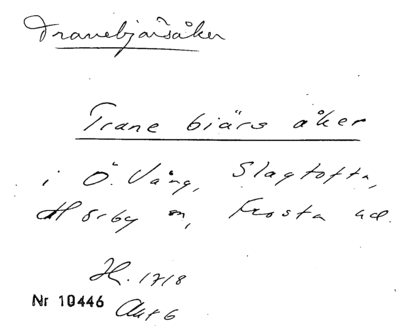 Tranebjärsåker
Trane biärs åker
i Ö. Vång, Slagtofta,
Hörby sn, Frosta hd.
H. 1718
Nr 10446 Akt 6